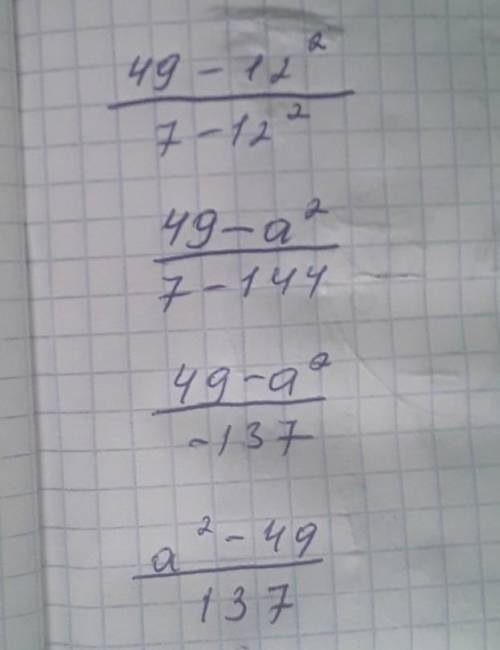 49 - 12²
7 - 12²
49 - a²
7 - 144
49 - a²
-137
a² - 49
137